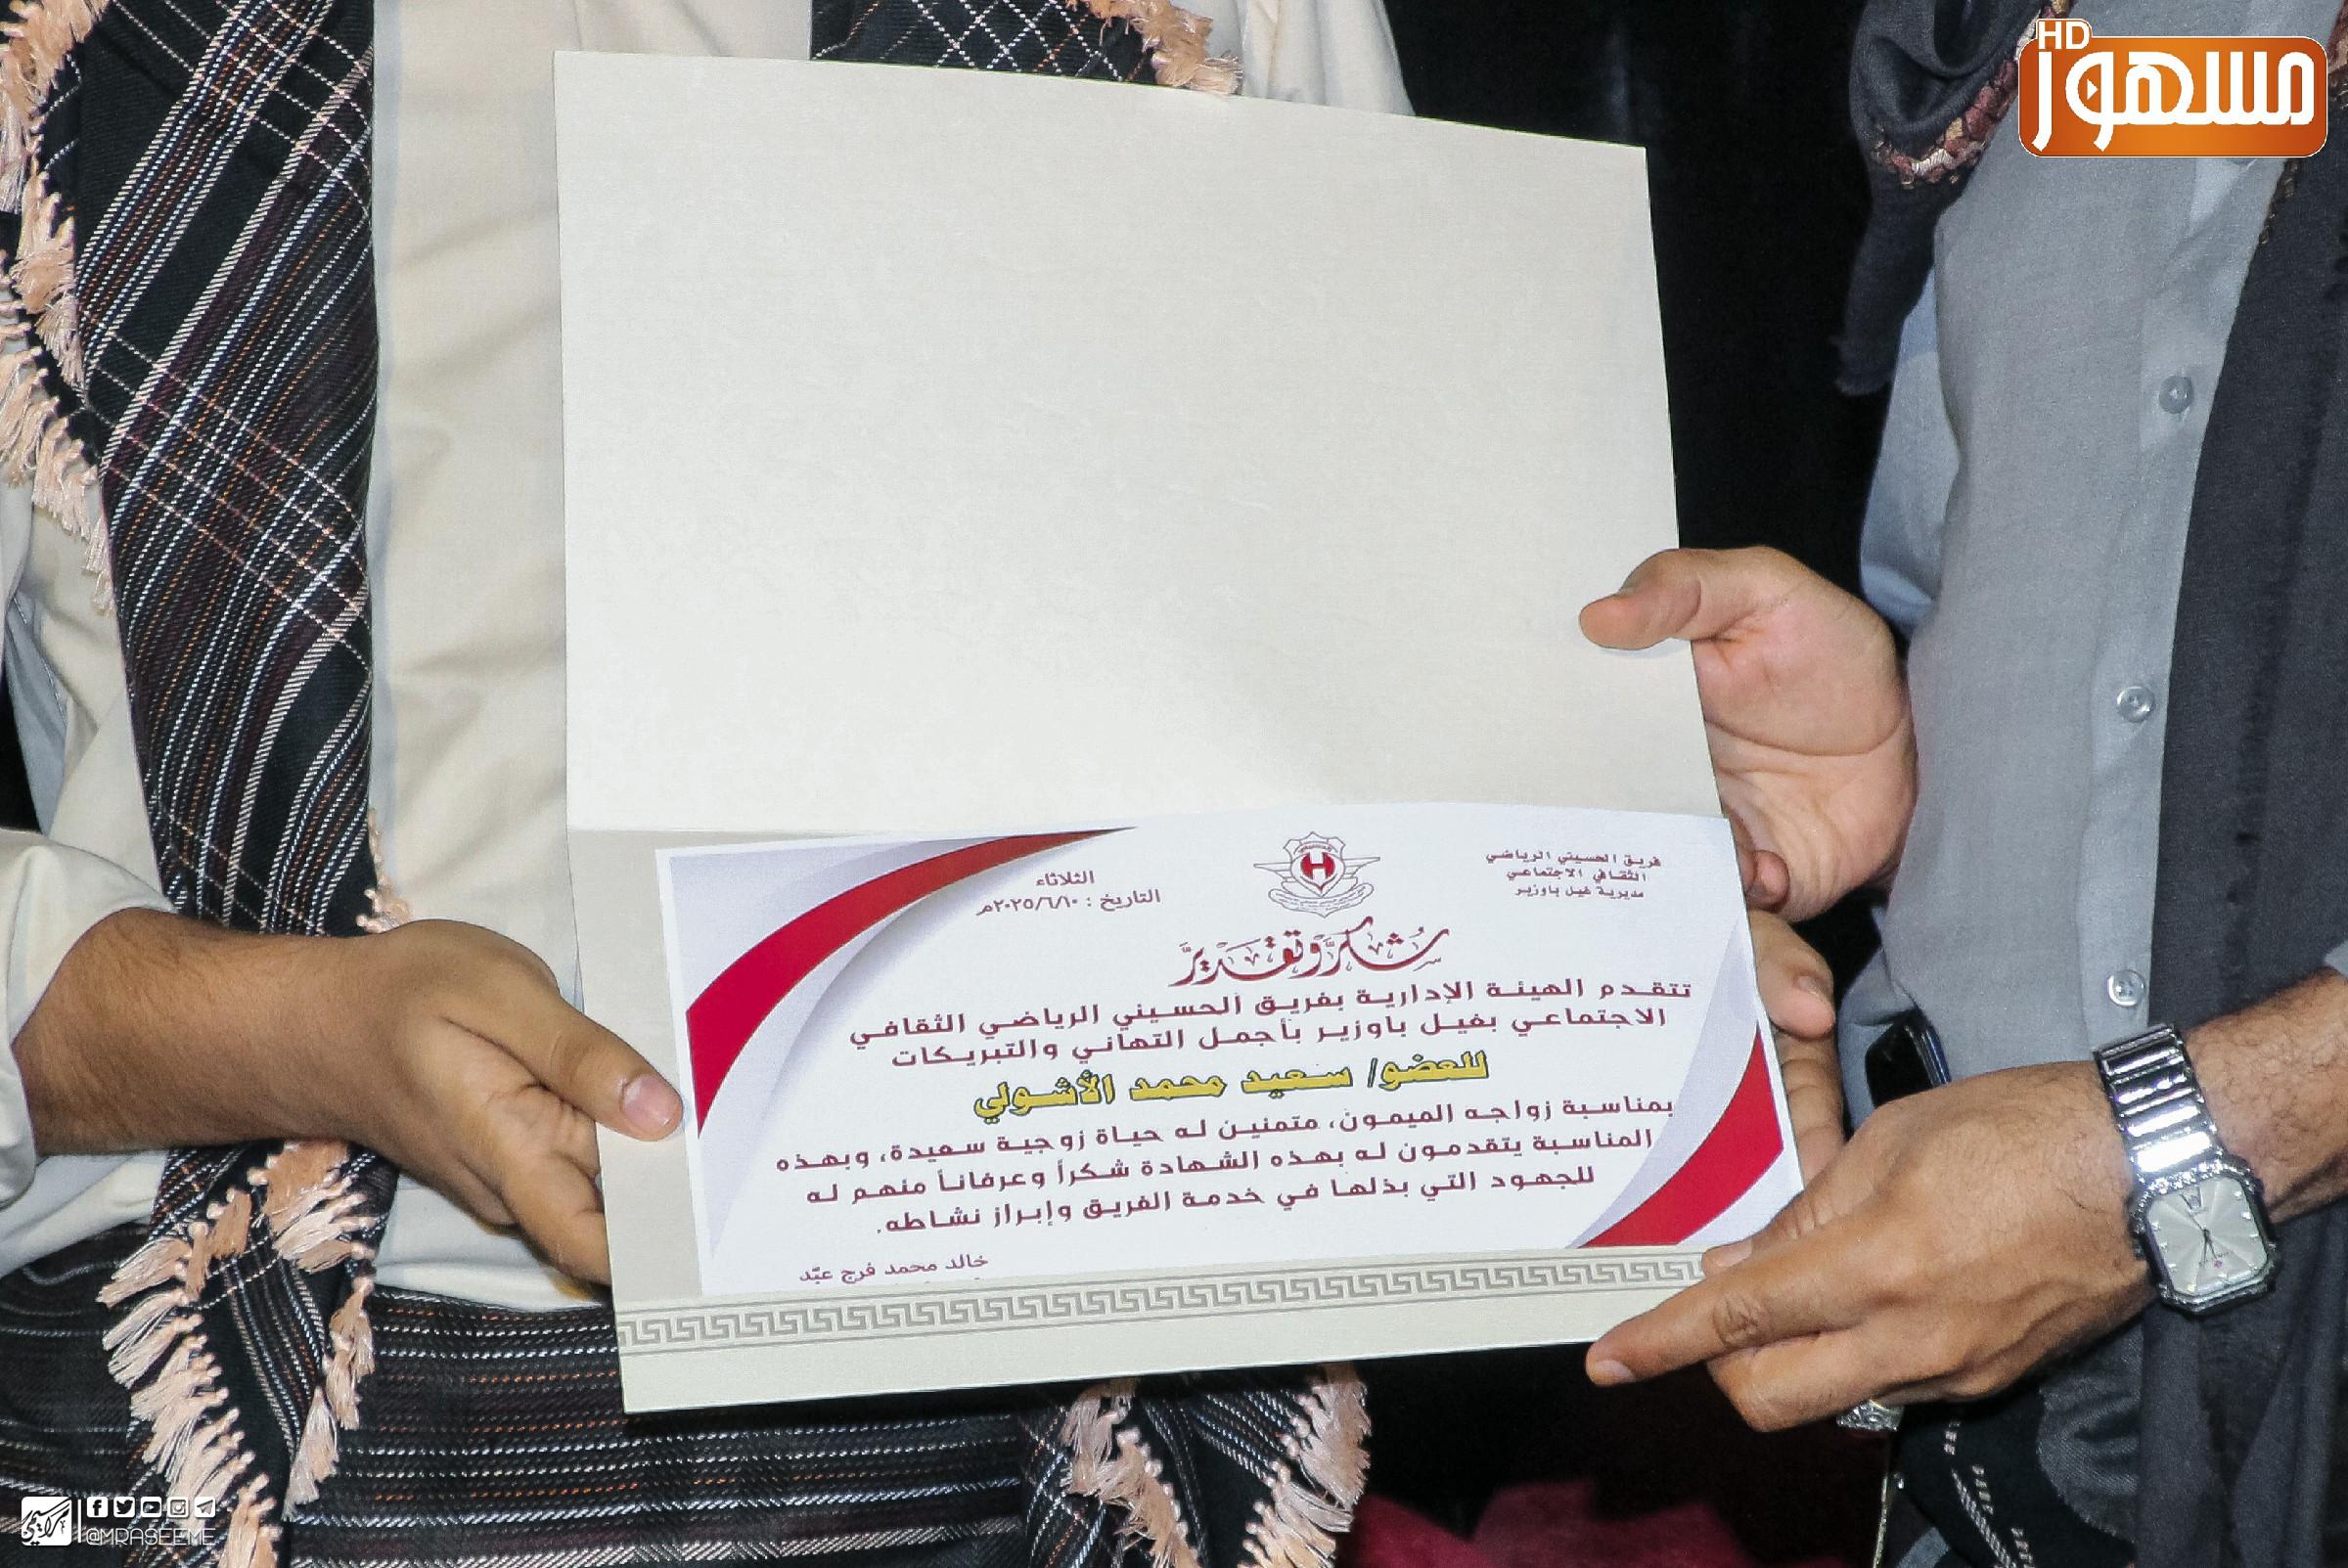 HD
مسهوز
فريق الحسيني الرياضي
الثقافي الاجتماعي
مديرية غيل باوزير
الثلاثاء
التاريخ : ٢٠٢٥/٦/١٠م
H
شكر وتقدير
تتقدم الهيئة الإدارية بفريق الحسيني الرياضي الثقافي
الاجتماعي بغيل باوزير بأجمل التهاني والتبريكات
للعضو/ سعيد محمد الأشولي
بمناسبة زواجه الميمون، متمنين له حياة زوجية سعيدة، وبهذه
المناسبة يتقدمون له بهذه الشهادة شكراً وعرفاناً منهم له
للجهود التي بذلها في خدمة الفريق وإبراز نشاطه.
خالد محمد فرج عبّد
@MRASEEME